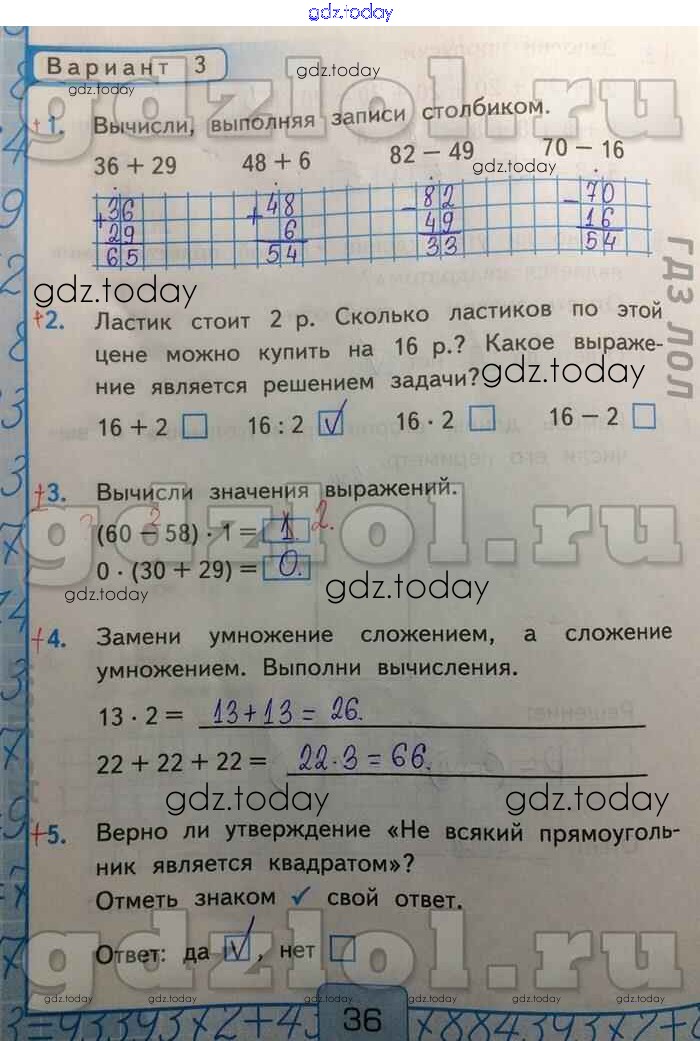 gdz.today
Вариант 3
gdz.today
gdzlol.ru
+1. Вычисли, выполняя записи столбиком.
36 + 29 48 + 6 82 − 49 70 − 16
gdz.today
+36 +48 −82 −70
29 6 49 16
65 54 33 54
gdz.today
гдз лол
+2. Ластик стоит 2 р. Сколько ластиков по этой
цене можно купить на 16 р.? Какое выраже-
ние является решением задачи?
gdz.today
16 + 2 16 : 2 √ 16 · 2 16 − 2
+3. Вычисли значения выражений.
gdzlol.ru
2
(60 − 58) · 1 = 1. 2.
0 · (30 + 29) = 0.
gdz.today gdz.today gdz.today
+4. Замени умножение сложением, а сложение
умножением. Выполни вычисления.
13 · 2 = 13+13 = 26.
22 + 22 + 22 = 22·3 = 66.
gdz.today gdz.today
+5. Верно ли утверждение «Не всякий прямоуголь-
ник является квадратом»?
Отметь знаком ✓ свой ответ.
gdzlol.ru
Ответ: да √, нет
gdz.today gdz.today gdz.today gdz.today gdz.today
36